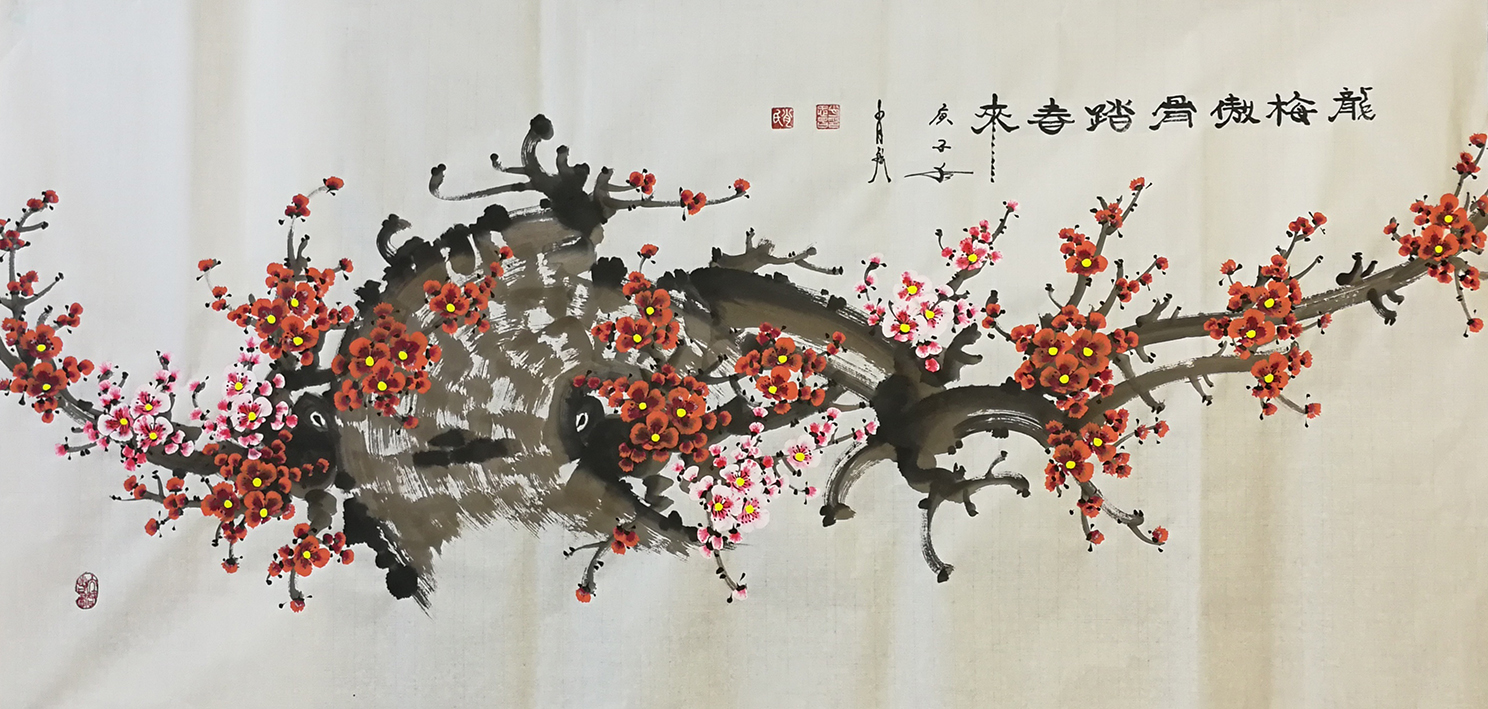 龍梅傲骨踏春來
庚子年
肖氏